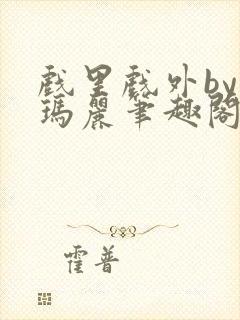 戲里戲外by
瑪麗筆趣閣
霍普